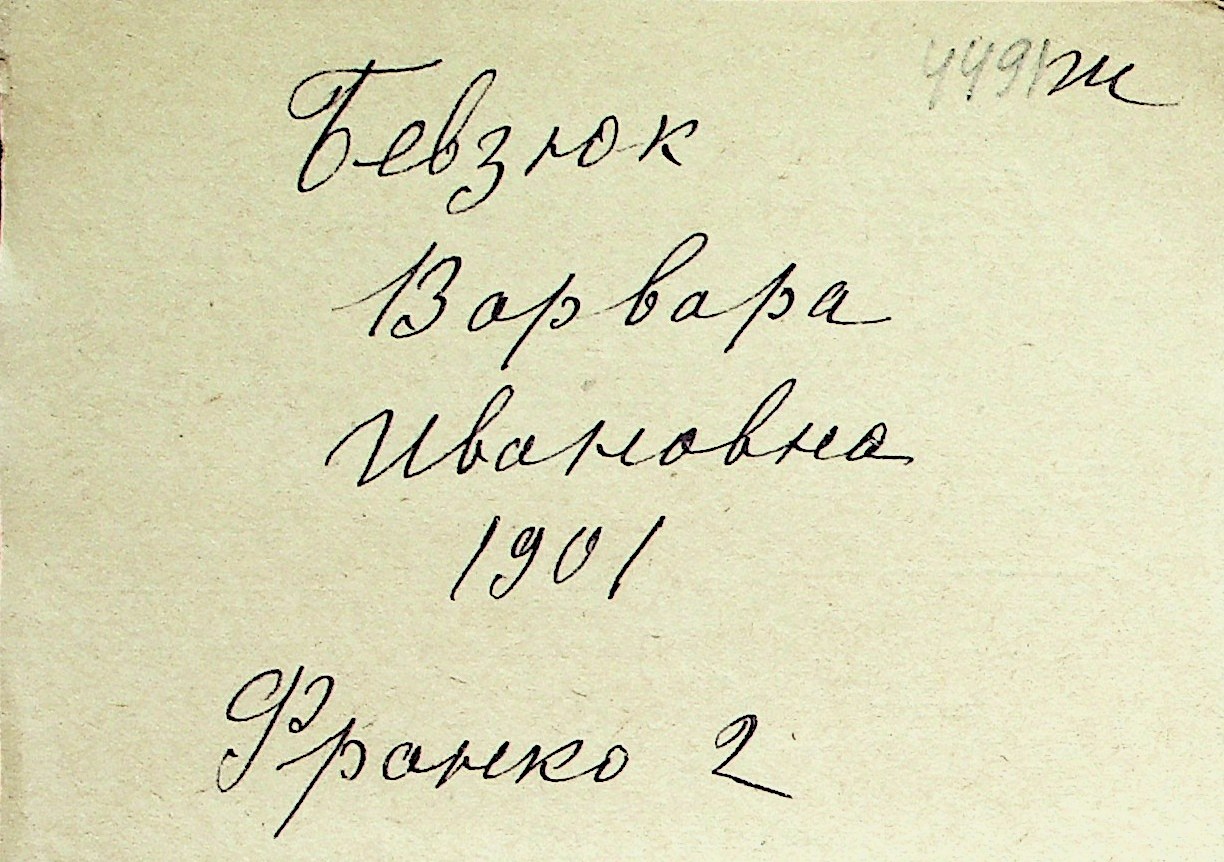 4491 ж
Бевзюк
Варвара
Ивановна
1901
Франко 2